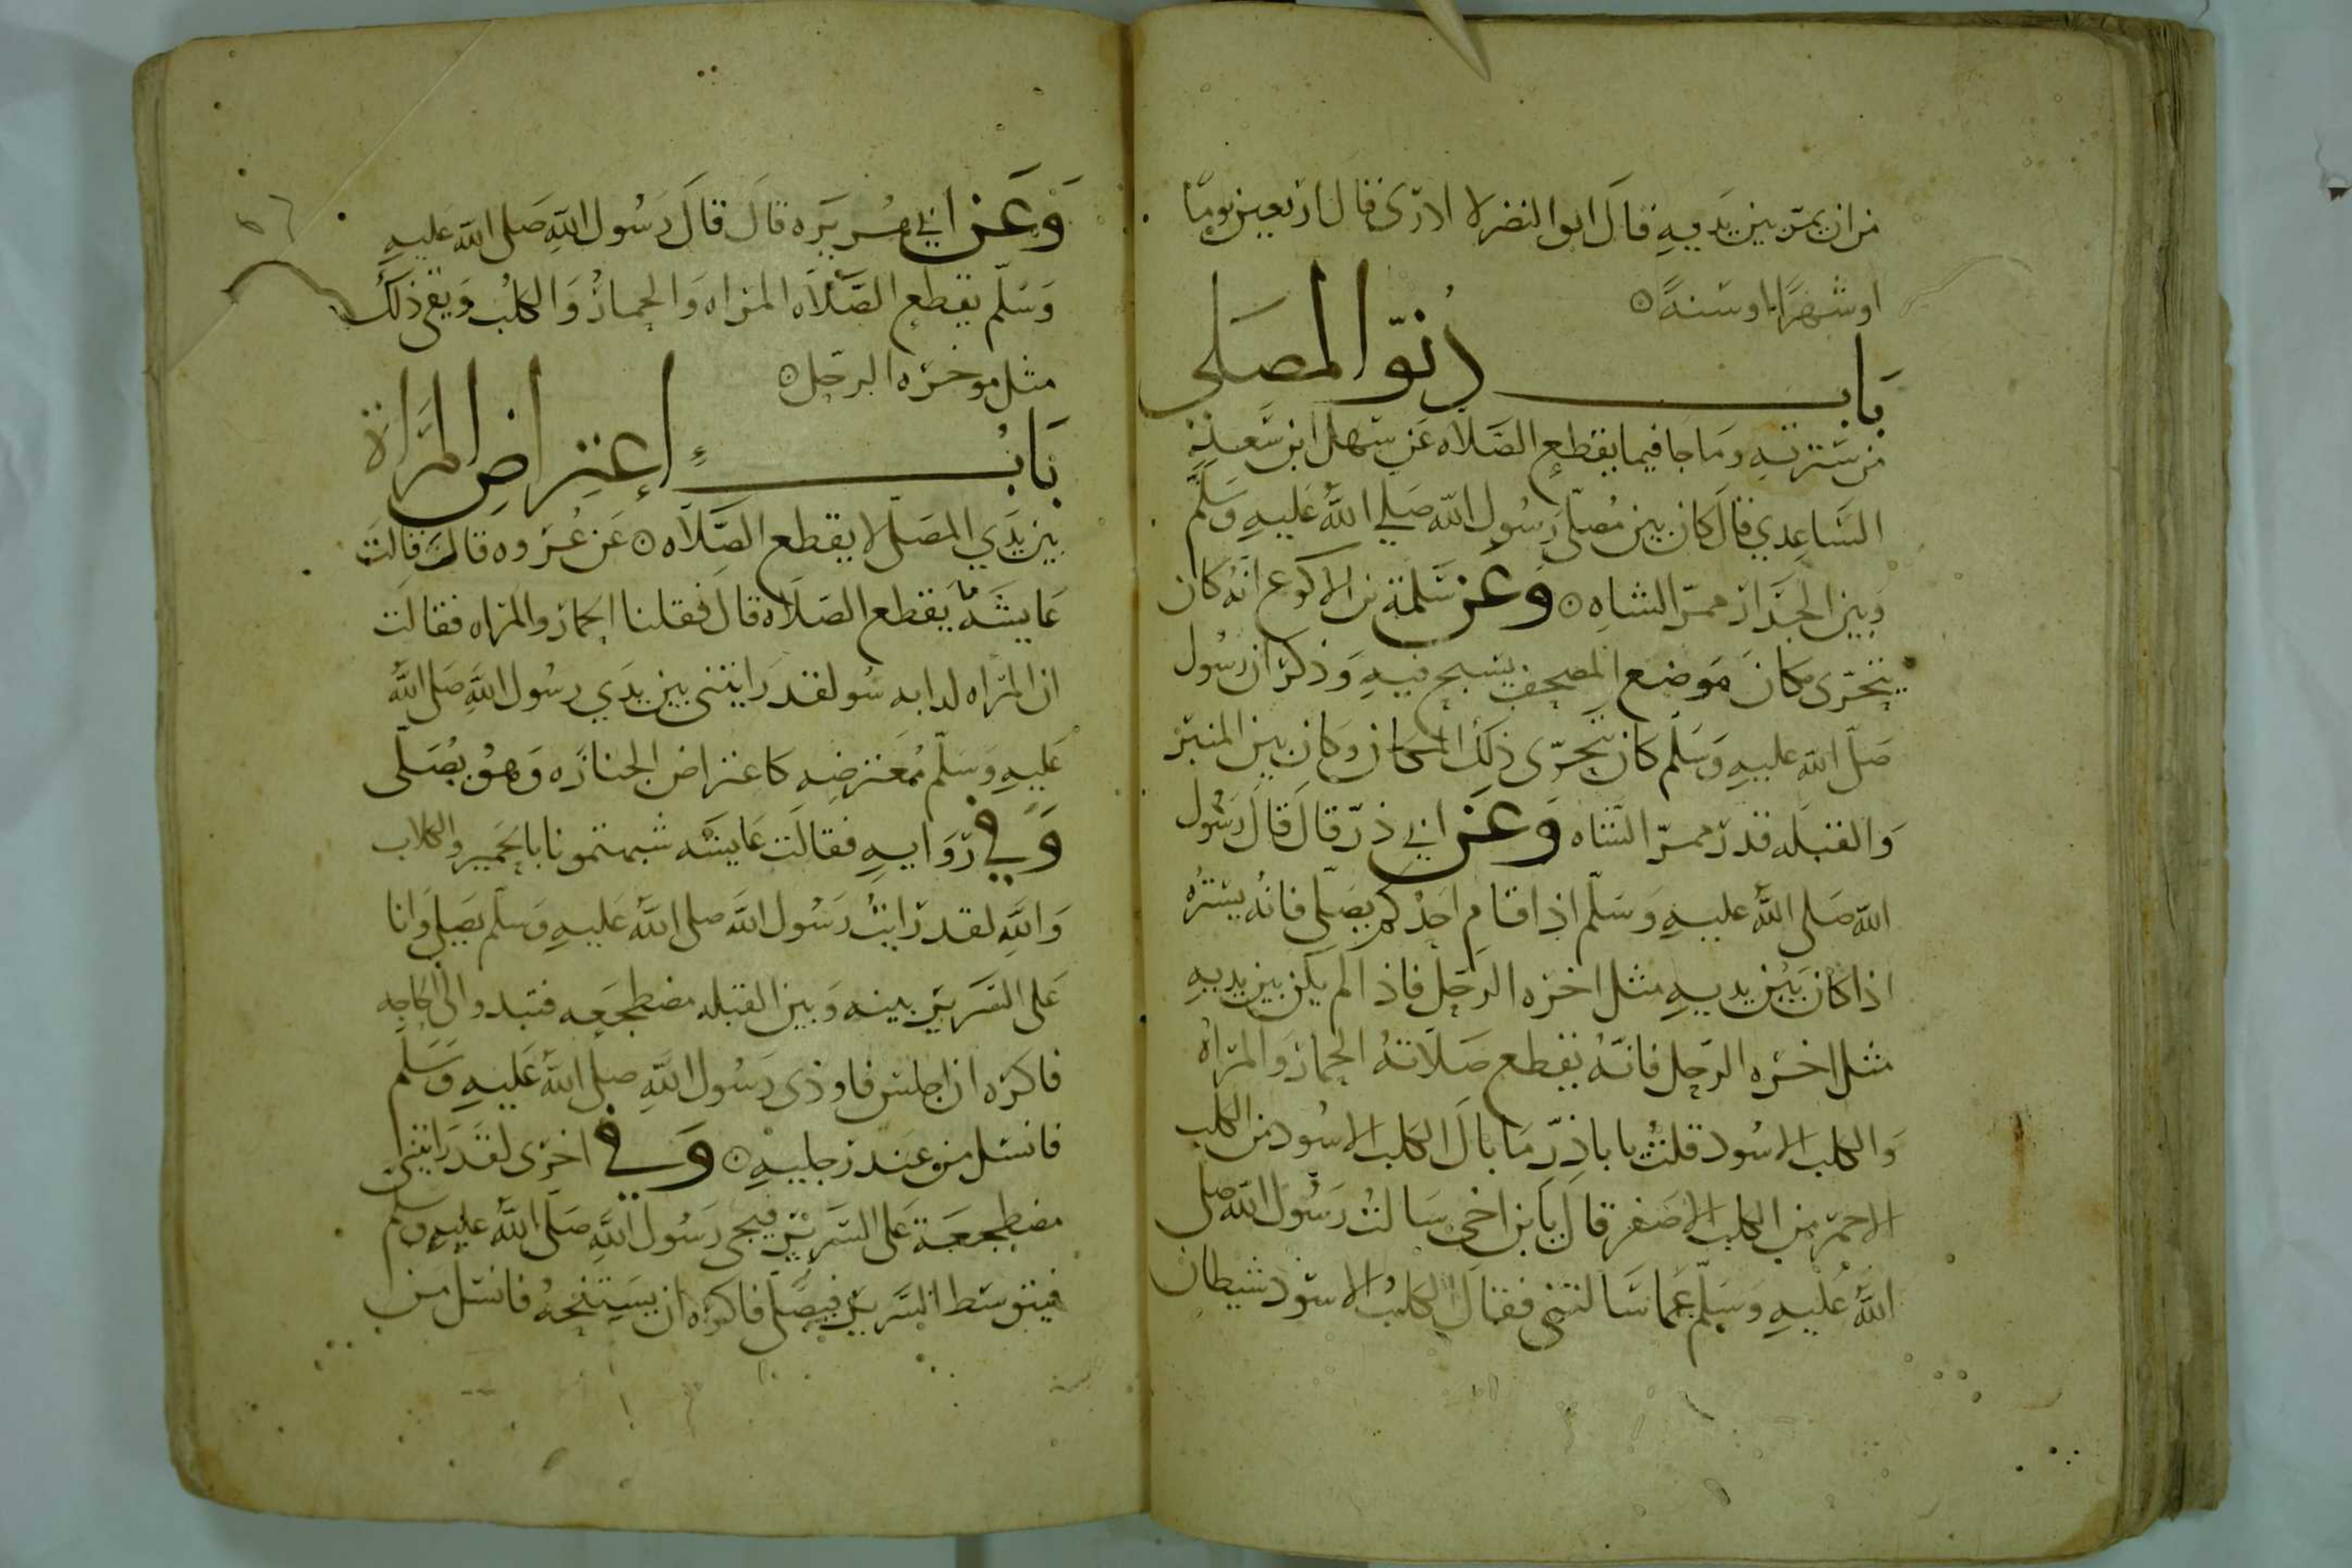 من ان يمر بين يديه قال ابو النضر لا ادرى قال اربعين يوما
او شهرًا او سنةً ۞
باب دنوّ المصلى
من سترته وما جا فيما يقطع الصلاه عن سهل ابن سعد
الساعدي قال كان بين مصلى رسول الله صلي الله عليه وسلم
وبين الجدار ممرّ الشاه ۞ وعن سلمة بن الاكوع انه كان
يتحرّى مكان موضع المصحف يسبح فيه وذكر ان رسول
صلى الله عليه وسلم كان يتحرّى ذلك المكان وكان بين المنبر
والقبله قدر ممرّ الشاه وعن ابي ذرّ قال قال رسول
الله صلى الله عليه وسلم اذا قام احدكم يصلى فانه يستره
اذا كان بين يديه مثل اخره الرحل فاذا لم يكن بين يديه
مثل اخره الرحل فانه يقطع صلاته الحمار والمراه
والكلب الاسود قلت يا باذرّ ما بال الكلب الاسود من الكلب
الاحمر من الكلب الاصفر قال يا بن اخي سالت رسول الله صلى
الله عليه وسلم عما سالتنى فقال الكلب الاسود شيطان
وعن ابي هريره قال قال رسول الله صلى الله عليه
وسلم يقطع الصلاه المراه والحمار والكلب ويقى ذلك
مثل موخره الرحل ۞
باب إعتراض المرأة
بين يدي المصلى لا يقطع الصلاه ۞ عن عروه قال قالت
عايشه ما يقطع الصلاه قال فقلنا الحمار والمراه فقالت
ان المراه لدابه سو لقد رايتنى بين يدي رسول الله صلى الله
عليه وسلم معترضه كاعتراض الجنازه وهو يصلى
وفي روايه فقالت عايشه شبهتمونا بالحمير والكلاب
والله لقد رايت رسول الله صلى الله عليه وسلم يصلى وانا
على السرير بينه وبين القبله مضطجعه فتبدو الى الحاجه
فاكره ان اجلس فاوذى رسول الله صلى الله عليه وسلم
فانسل من عند رجليه ۞ وفي اخرى لقد رايتنى
مضطجعة على السرير فيجى رسول الله صلى الله عليه وسلم
فيتوسط السرير فيصلى فاكره ان يسنحه فانسل من